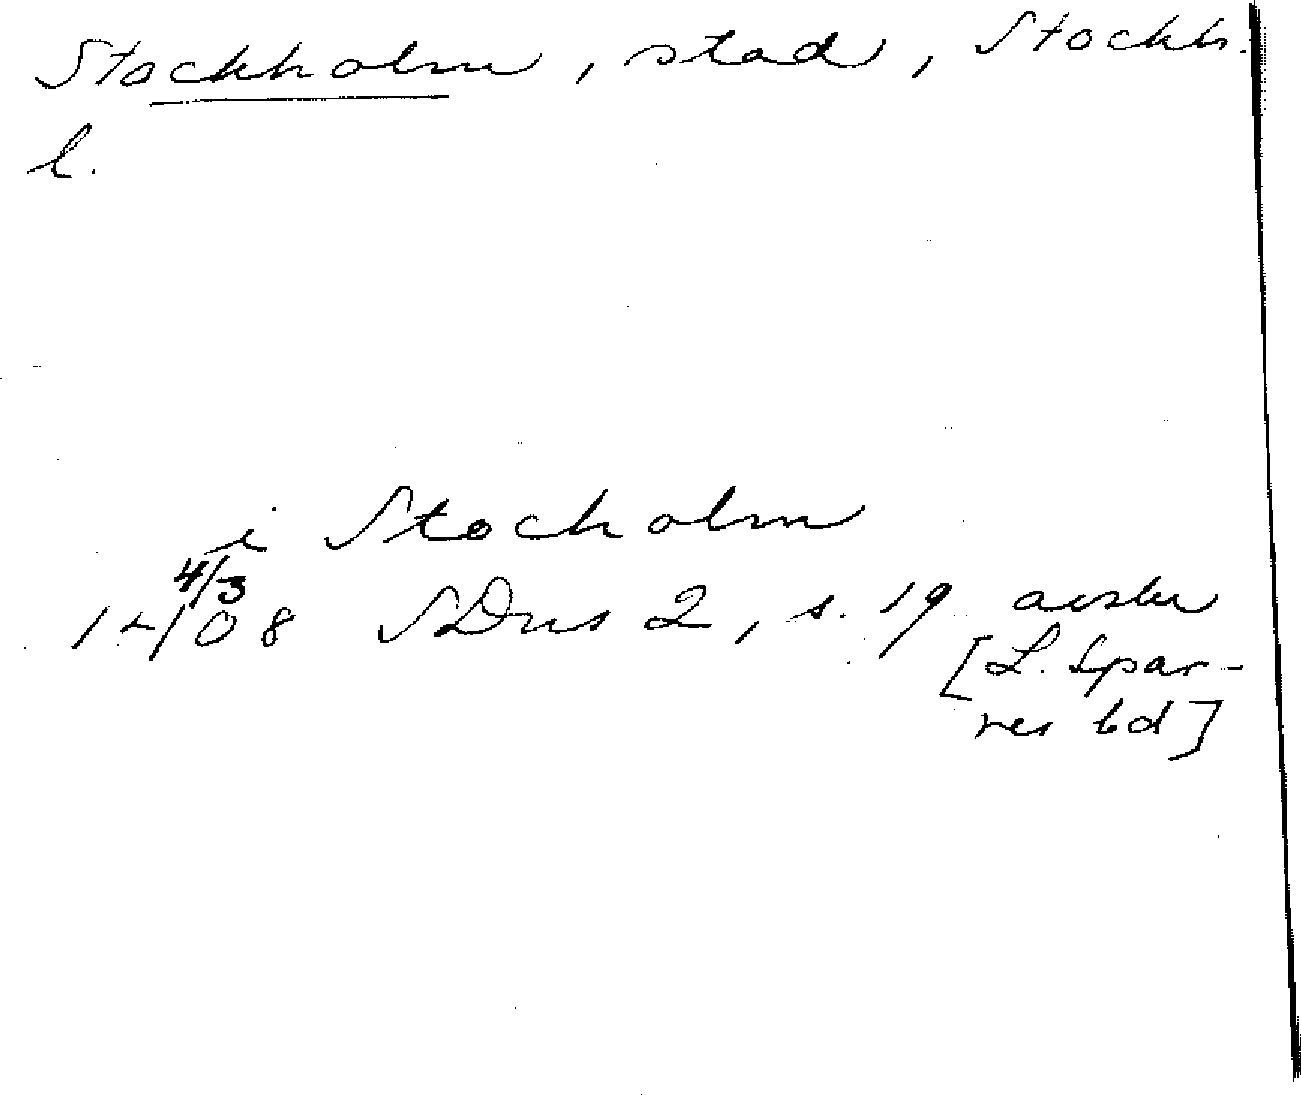 Stockholm, stad, Stockh.
l.
i Stocholm
4/3
1408 SDns 2, s. 19 avskr
[L. Spar-
res bd]